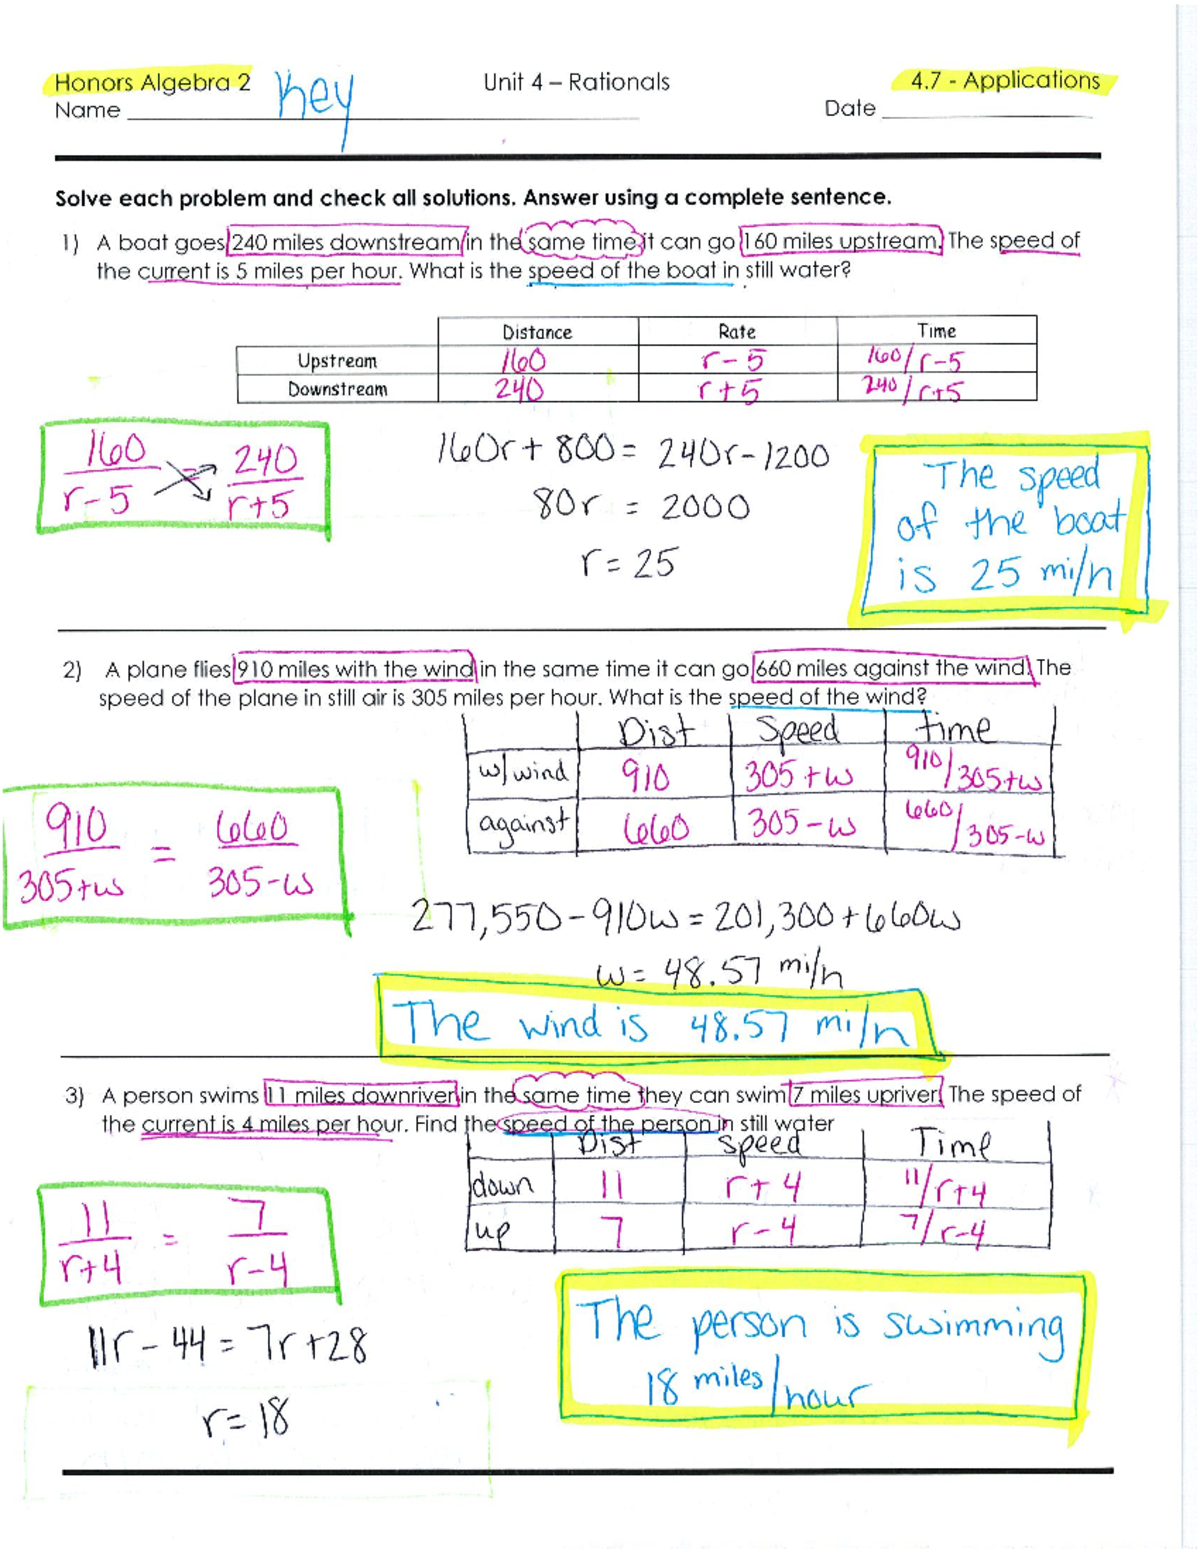 Honors Algebra 2 Unit 4 – Rationals 4.7 - Applications
Name Key Date
Solve each problem and check all solutions. Answer using a complete sentence.
1) A boat goes 240 miles downstream in the same time it can go 160 miles upstream. The speed of
the current is 5 miles per hour. What is the speed of the boat in still water?
Distance Rate Time
Upstream 160 r-5 160/r-5
Downstream 240 r+5 240/r+5
160/r-5 = 240/r+5
160r + 800 = 240r - 1200
80r = 2000
r = 25
The speed
of the boat
is 25 mi/h
2) A plane flies 910 miles with the wind in the same time it can go 660 miles against the wind. The
speed of the plane in still air is 305 miles per hour. What is the speed of the wind?
Dist Speed time
w/wind 910 305+w 910/305+w
against 660 305-w 660/305-w
910/305+w = 660/305-w
277,550 - 910w = 201,300 + 660w
w = 48.57 mi/h
The wind is 48.57 mi/h
3) A person swims 11 miles downriver in the same time they can swim 7 miles upriver. The speed of
the current is 4 miles per hour. Find the speed of the person in still water
Dist speed Time
down 11 r+4 11/r+4
up 7 r-4 7/r-4
11/r+4 = 7/r-4
11r - 44 = 7r + 28
r = 18
The person is swimming
18 miles/hour